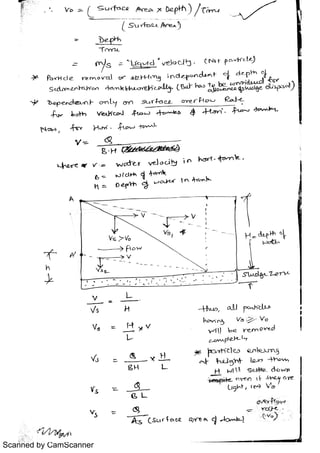 ∴ Vo = (Surface Area x Depth) / Time
(Surface Area)
= Depth
Time
= m/s = "Liquid" velocity. (not particle)
* Particle removal or settling independent of depth of
Sedimentation tank theoretically. (But has to be considered for
allowance of sludge disposal)
* Dependent only on surface overflow Rate
for both vertical flow tanks & Hori. flow tanks.
Now, for Hori. flow tank
V = Q
B·H
where v = water velocity in hori. tank.
B = width of tank
h = Depth of water in tank
A
V
V
Vs >Vo
Flow
V
A'
H = depth of
h
Sludge Zone
V = L
Vs H
Vs = H x V
L
Vs = Q x H
BH L
Vs = Q
B L
Vs = Q
As (surface area of tank)
-thus, all particles
having Vs ≥ Vo
will be removed
completely
* particles entering
at height less than
H will settle down
even if they are
light, i.e. Vo
= overflow
rate
(Vo)
Scanned by CamScanner